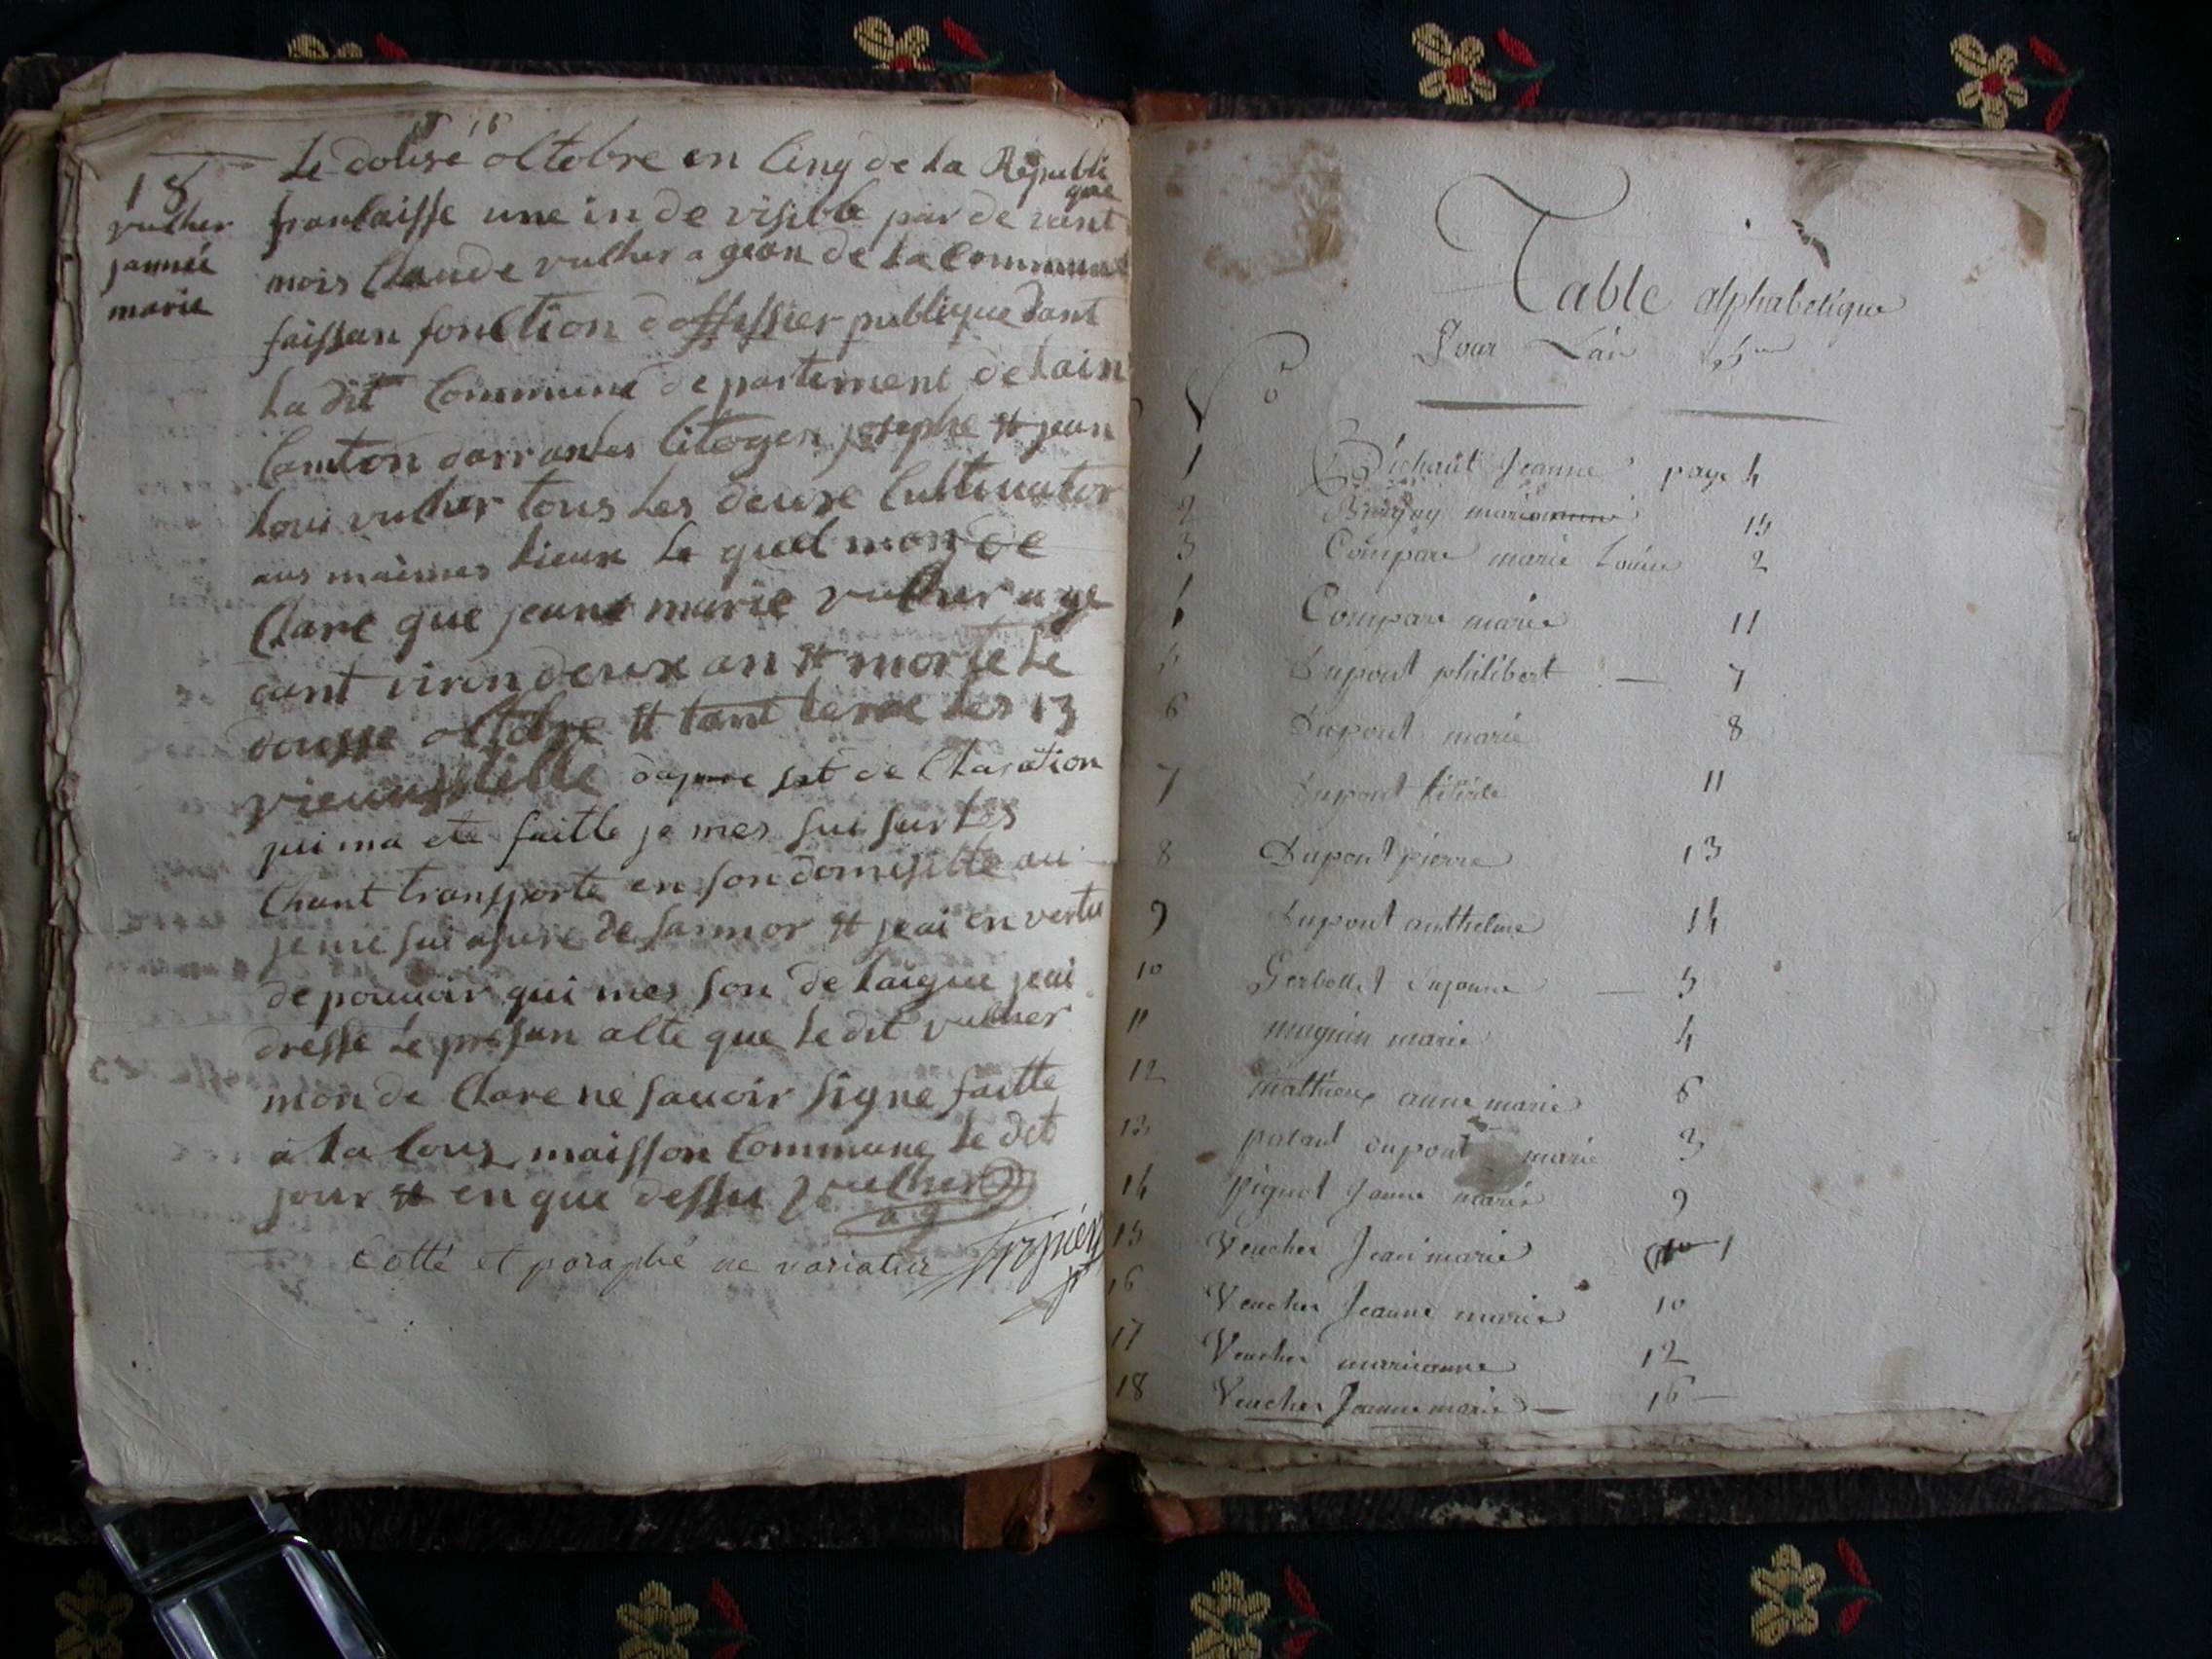 16
18
vulher
jannée
marie
Le douse octobre en Cinq de la Républi
que
francaisse une in de visible par de vant
mois Claude vulher a gean de la Commune
faissan fonction doffissier publique dant
La dit Commune de partement de Lain
Canton darrantes Citogen josephe et jean
Loui vulher tous Les deuxe Cultivator
aus maimes Lieux Le quel mon de
Clare que jeane marie vulher a ge
dant viron deux an et morte Le
dousse octobre et tant terae Les 13
vieuxstille dapre set de Claration
qui ma ete faitte je mes sui sur Les
Chant transporte en son domisille au
je me sui asure de sa mor et jeai en vertu
de pouvoir qui mes son de Laigue jeai
dresse Le presan alte que Le dit vulher
mon de Clare ne savoir signe faitte
a La Cous maisson Commune Le dit
jour et en que dessu vulher
a g
Cotté et paraphé ne variatur
Table alphabetique
Pour Lan 5me
No
1 Bichaut Jeanne page 4
2 marie 15
3 Compare marie Louise 2
4 Compare marie 11
5 Dupont philibert — 7
6 Dupont marie 8
7 Dupont 11
8 Dupont pierre 13
9 Dupont anthelme 14
10 Gerbollet — 5
11 magnin marie 4
12 mathieux anne marie 6
13 patant dupont marie 3
14 pignot Janne marie 9
15 Veucher Jean marie 1
16 Veucher Jeanne marie 10
17 Veucher marieanne 12
18 Veucher Jeanne marie — 16 —